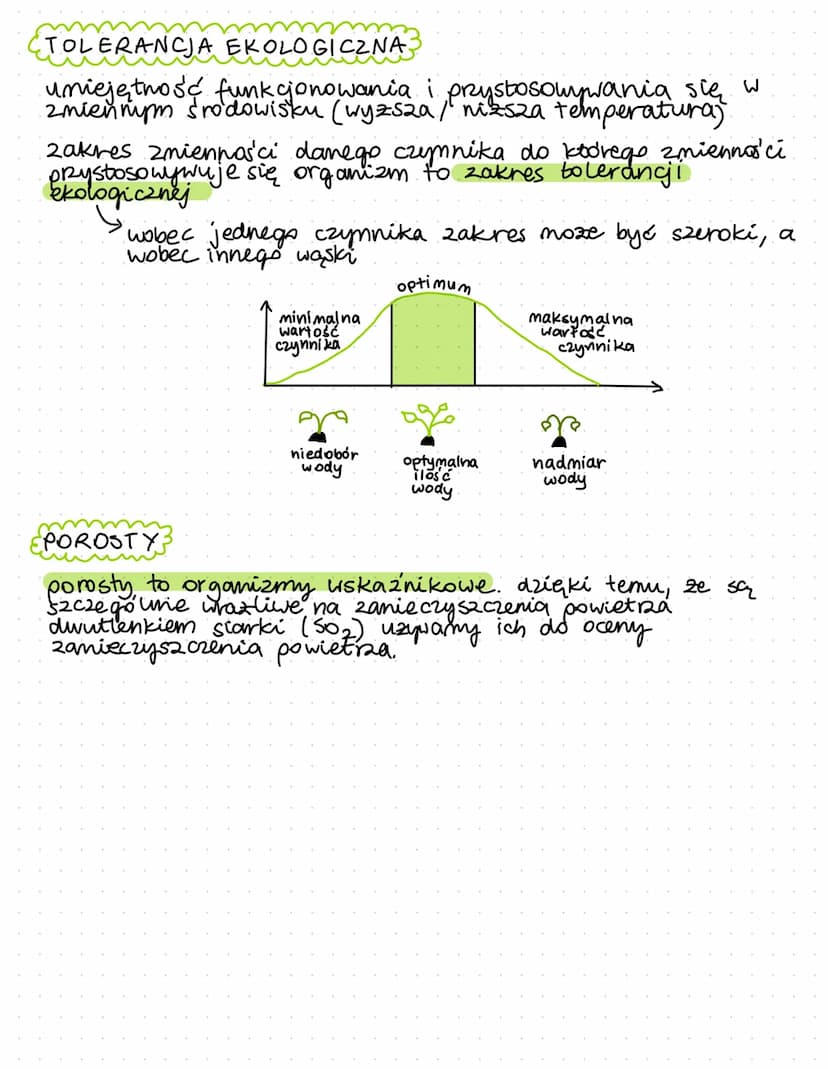 TOLERANCJA EKOLOGICZNA
umiejętność funkcjonowania i przystosowywania się w
zmiennym środowisku (wyższa / niższa temperatura)
zakres zmienności danego czynnika do którego zmienności
przystosowywuje się organizm to zakres tolerancji
ekologicznej
wobec jednego czynnika zakres może być szeroki, a
wobec innego wąski
optimum
minimalna
wartość
czynnika
maksymalna
wartość
czynnika
niedobór
wody
optymalna
ilość
wody
nadmiar
wody
POROSTY
porosty to organizmy wskaźnikowe. dzięki temu, że są
szczególnie wrażliwe na zanieczyszczenia powietrza
dwutlenkiem siarki (SO2) używamy ich do oceny
zanieczyszczenia powietrza.